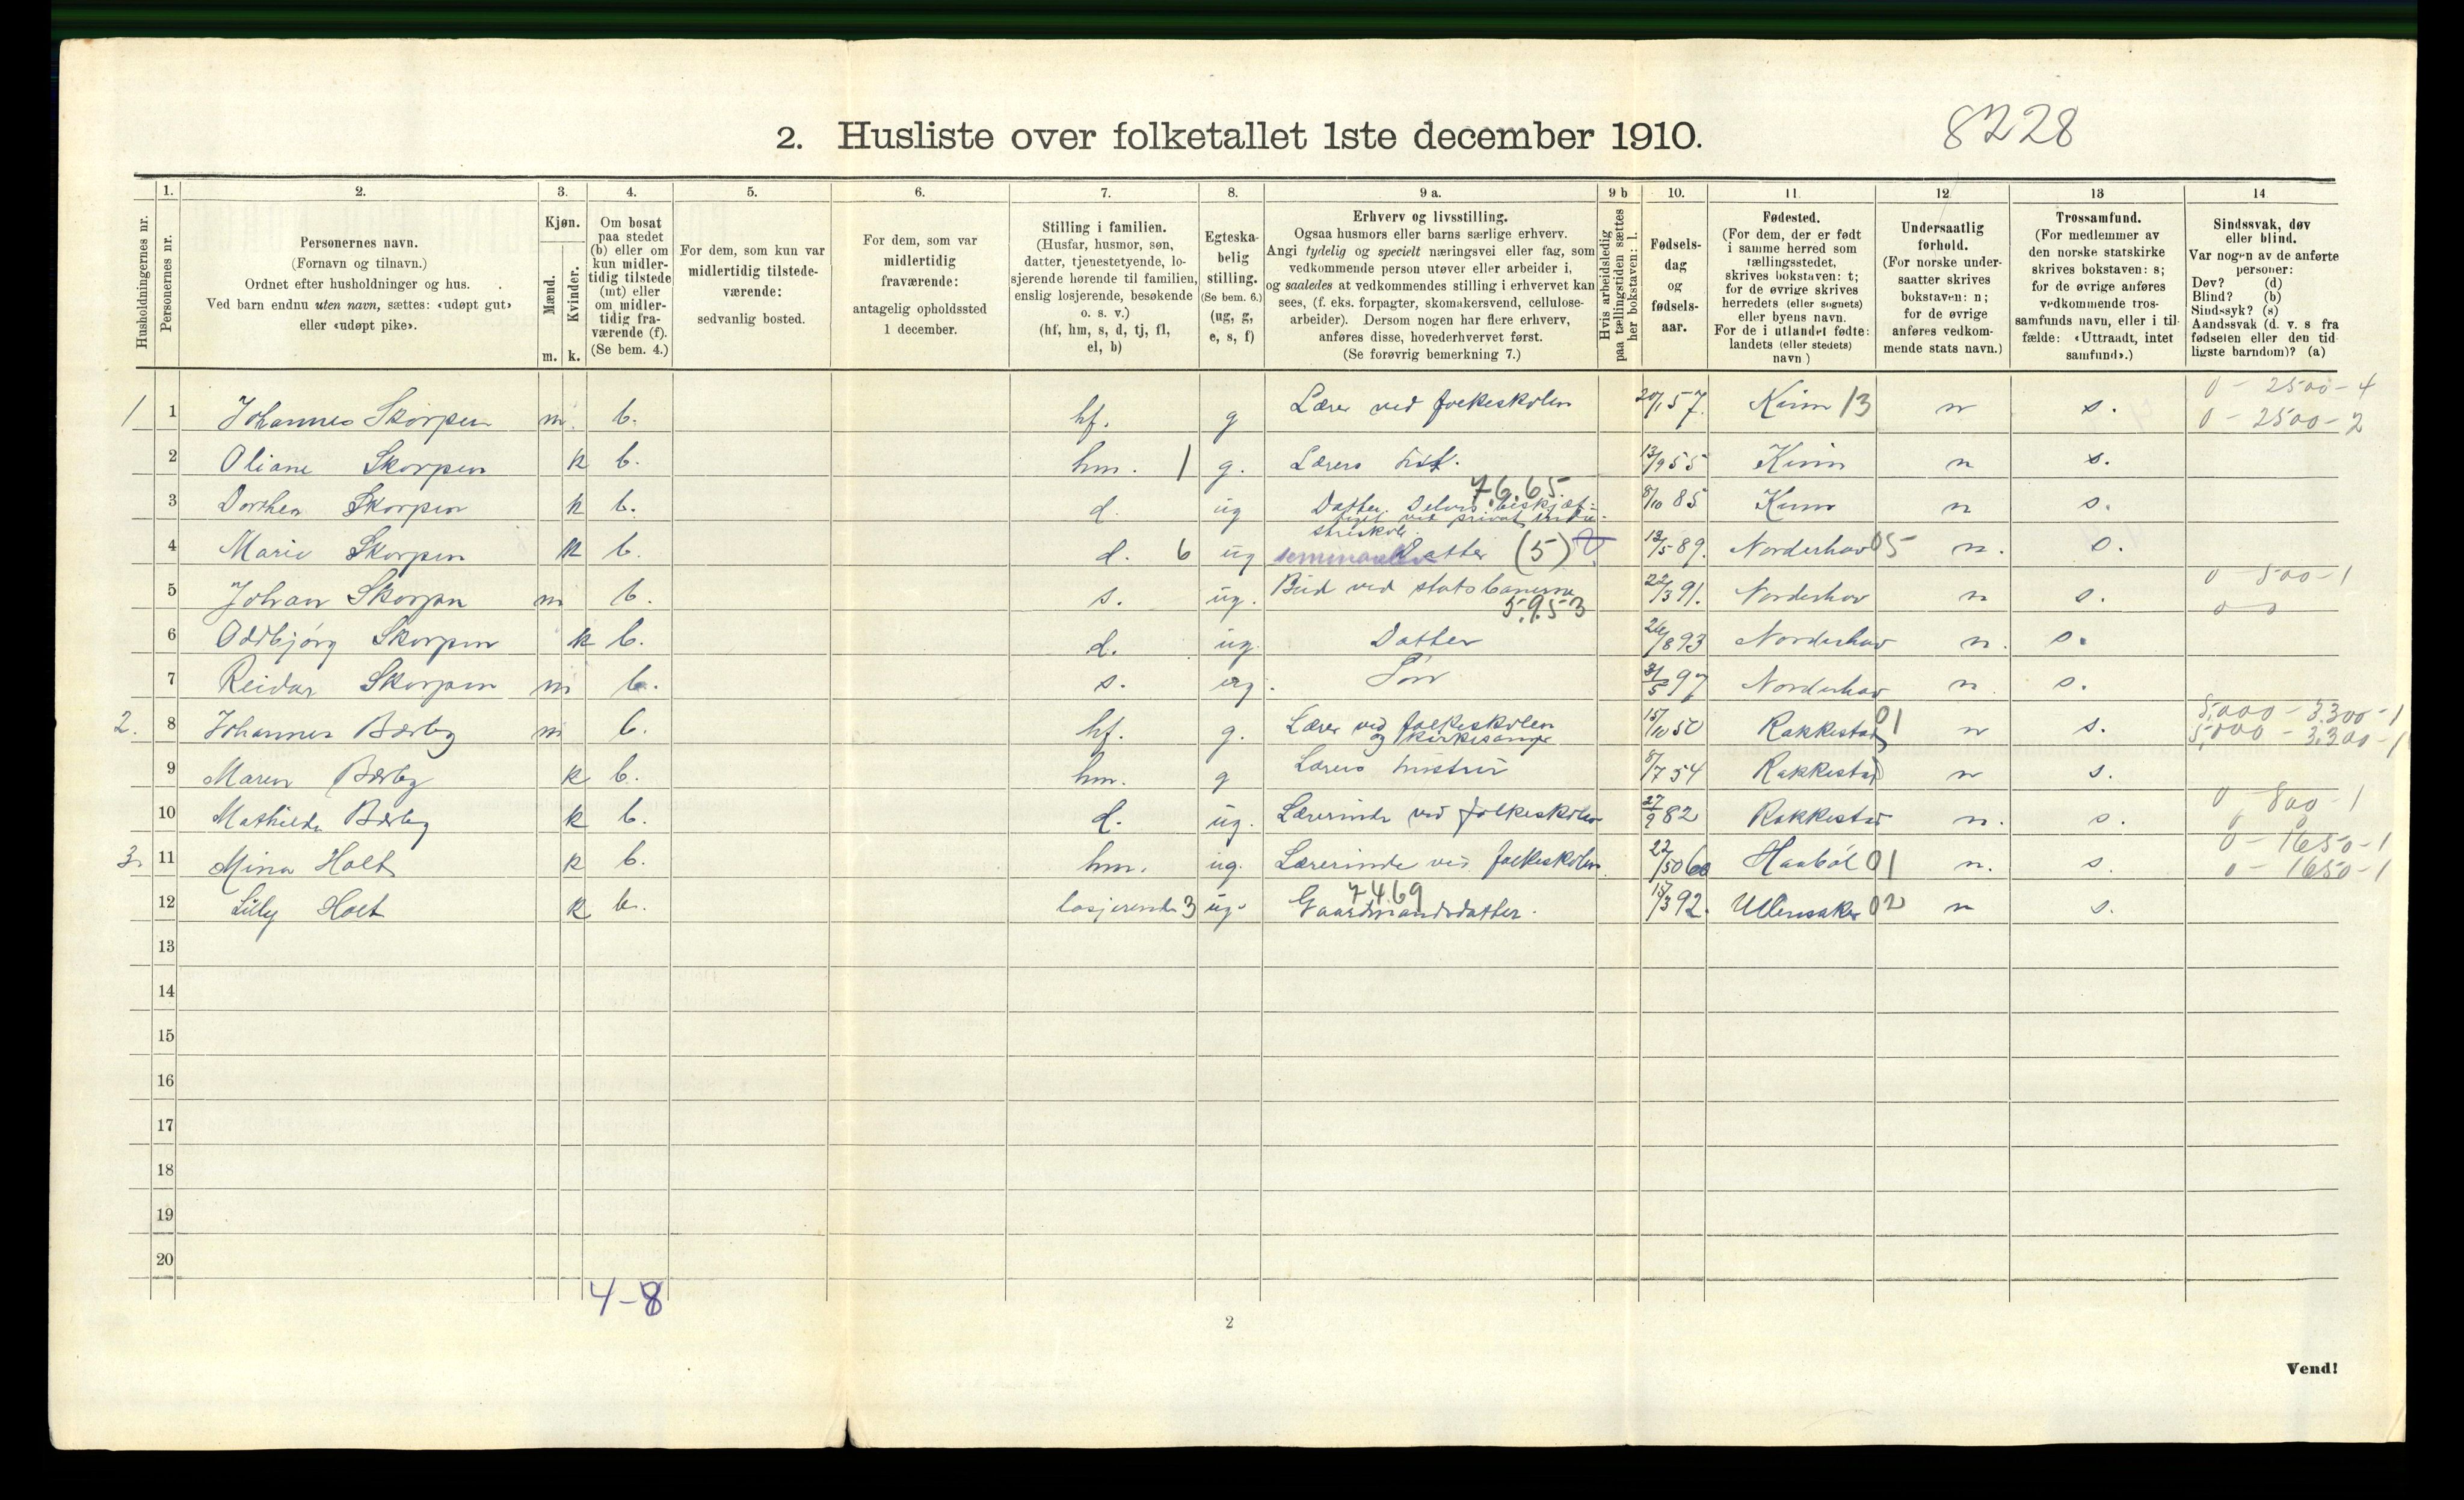 2. Husliste over folketallet 1ste december 1910.
8228
1. 2. 3. 4. 5. 6. 7. 8. 9 a. 9 b 10. 11. 12. 13 14
Husholdningernes nr.
Personernes nr.
Personernes navn.
(Fornavn og tilnavn.)
Ordnet efter husholdninger og hus.
Ved barn endnu uten navn, sættes: «udøpt gut»
eller «udøpt pike».
Kjøn.
Mænd.
Kvinder.
m. k.
Om bosat
paa stedet
(b) eller om
kun midler-
tidig tilstede
(mt) eller
om midler-
tidig fra-
værende (f).
(Se bem. 4.)
For dem, som kun var
midlertidig tilstede-
værende:
sedvanlig bosted.
For dem, som var
midlertidig
fraværende:
antagelig opholdssted
1 december.
Stilling i familien.
(Husfar, husmor, søn,
datter, tjenestetyende, lo-
sjerende hørende til familien,
enslig losjerende, besøkende
o. s. v.)
(hf, hm, s, d, tj, fl,
el, b)
Egteska-
belig
stilling.
(Se bem. 6.)
(ug, g,
e, s, f)
Erhverv og livsstilling.
Ogsaa husmors eller barns særlige erhverv.
Angi tydelig og specielt næringsvei eller fag, som
vedkommende person utøver eller arbeider i,
og saaledes at vedkommendes stilling i erhvervet kan
sees, (f. eks. forpagter, skomakersvend, cellulose-
arbeider). Dersom nogen har flere erhverv,
anføres disse, hovederhvervet først.
(Se forøvrig bemerkning 7.)
Hvis arbeidsledig
paa tællingstiden sættes
her bokstaven: l.
Fødsels-
dag
og
fødsels-
aar.
Fødested.
(For dem, der er født
i samme herred som
tællingsstedet,
skrives bokstaven: t;
for de øvrige skrives
herredets (eller sognets)
eller byens navn.
For de i utlandet fødte:
landets (eller stedets)
navn)
Undersaatlig
forhold.
(For norske under-
saatter skrives
bokstaven: n;
for de øvrige
anføres vedkom-
mende stats navn.)
Trossamfund.
(For medlemmer av
den norske statskirke
skrives bokstaven: s;
for de øvrige anføres
vedkommende tros-
samfunds navn, eller i til-
fælde: «Uttraadt, intet
samfund».)
Sindssvak, døv
eller blind.
Var nogen av de anførte
personer:
Døv? (d)
Blind? (b)
Sindssyk? (s)
Aandssvak (d. v. s fra
fødselen eller den tid
ligste barndom)? (a)
0 - 2500 - 4
1 1 Johannes Skorpen m. b. hf. g Lærer ved folkeskolen 20/1 57. Kinn 13 n s. 0 - 2500 - 2
2 Oliane Skorpen k b. hm. 1 g. Lærers 13/9 55 Kinn n s.
7665
3 Dorthea Skorpen k b. d. ug Datter. Delvis beskjæf-
tiget ved privat
8/10 85 Kinn n s.
4 Marie Skorpen k b. d. 6 ug Datter (5) 12/5 89. Norderhov 05 n. s.
5 Johan Skorpen m b. s. ug. Bud ved statsbanerne 22/3 91. Norderhov n s. 0 - 800 - 1
5953 0 0
6 Oddbjørg Skorpen k b. d. ug. Datter 26/8 93 Norderhov n. s.
7 Reidar Skorpen m b. s. ug. Søn 31/5 97 Norderhov n s.
5,000 - 3.300 - 1
2. 8 Johannes Bærby m b. hf. g. Lærer ved folkeskolen
og kirkesanger
15/10 50 Rakkestad 01 n s. 5,000 - 3.300 - 1
9 Maren Bærby k b. hm. g Lærers hustru 8/7 54 Rakkestad n s.
10 Mathilde Bærby k b. d. ug. Lærerinde ved folkeskolen 27/9 82 Rakkestad n. s. 0 - 800 - 1
0 - 1650 - 1
3. 11 Mina Holt k b. hm. ug. Lærerinde ved folkeskolen. 60 Haabøl 01 n. s. 0 - 1650 - 1
7469
12 Lilly Holt k b. losjerende 3 ug. Gaardmandsdatter. 15/3 92. Ullensaker 02 n s.
13
14
15
16
17
18
19
20
4-8
2
Vend!